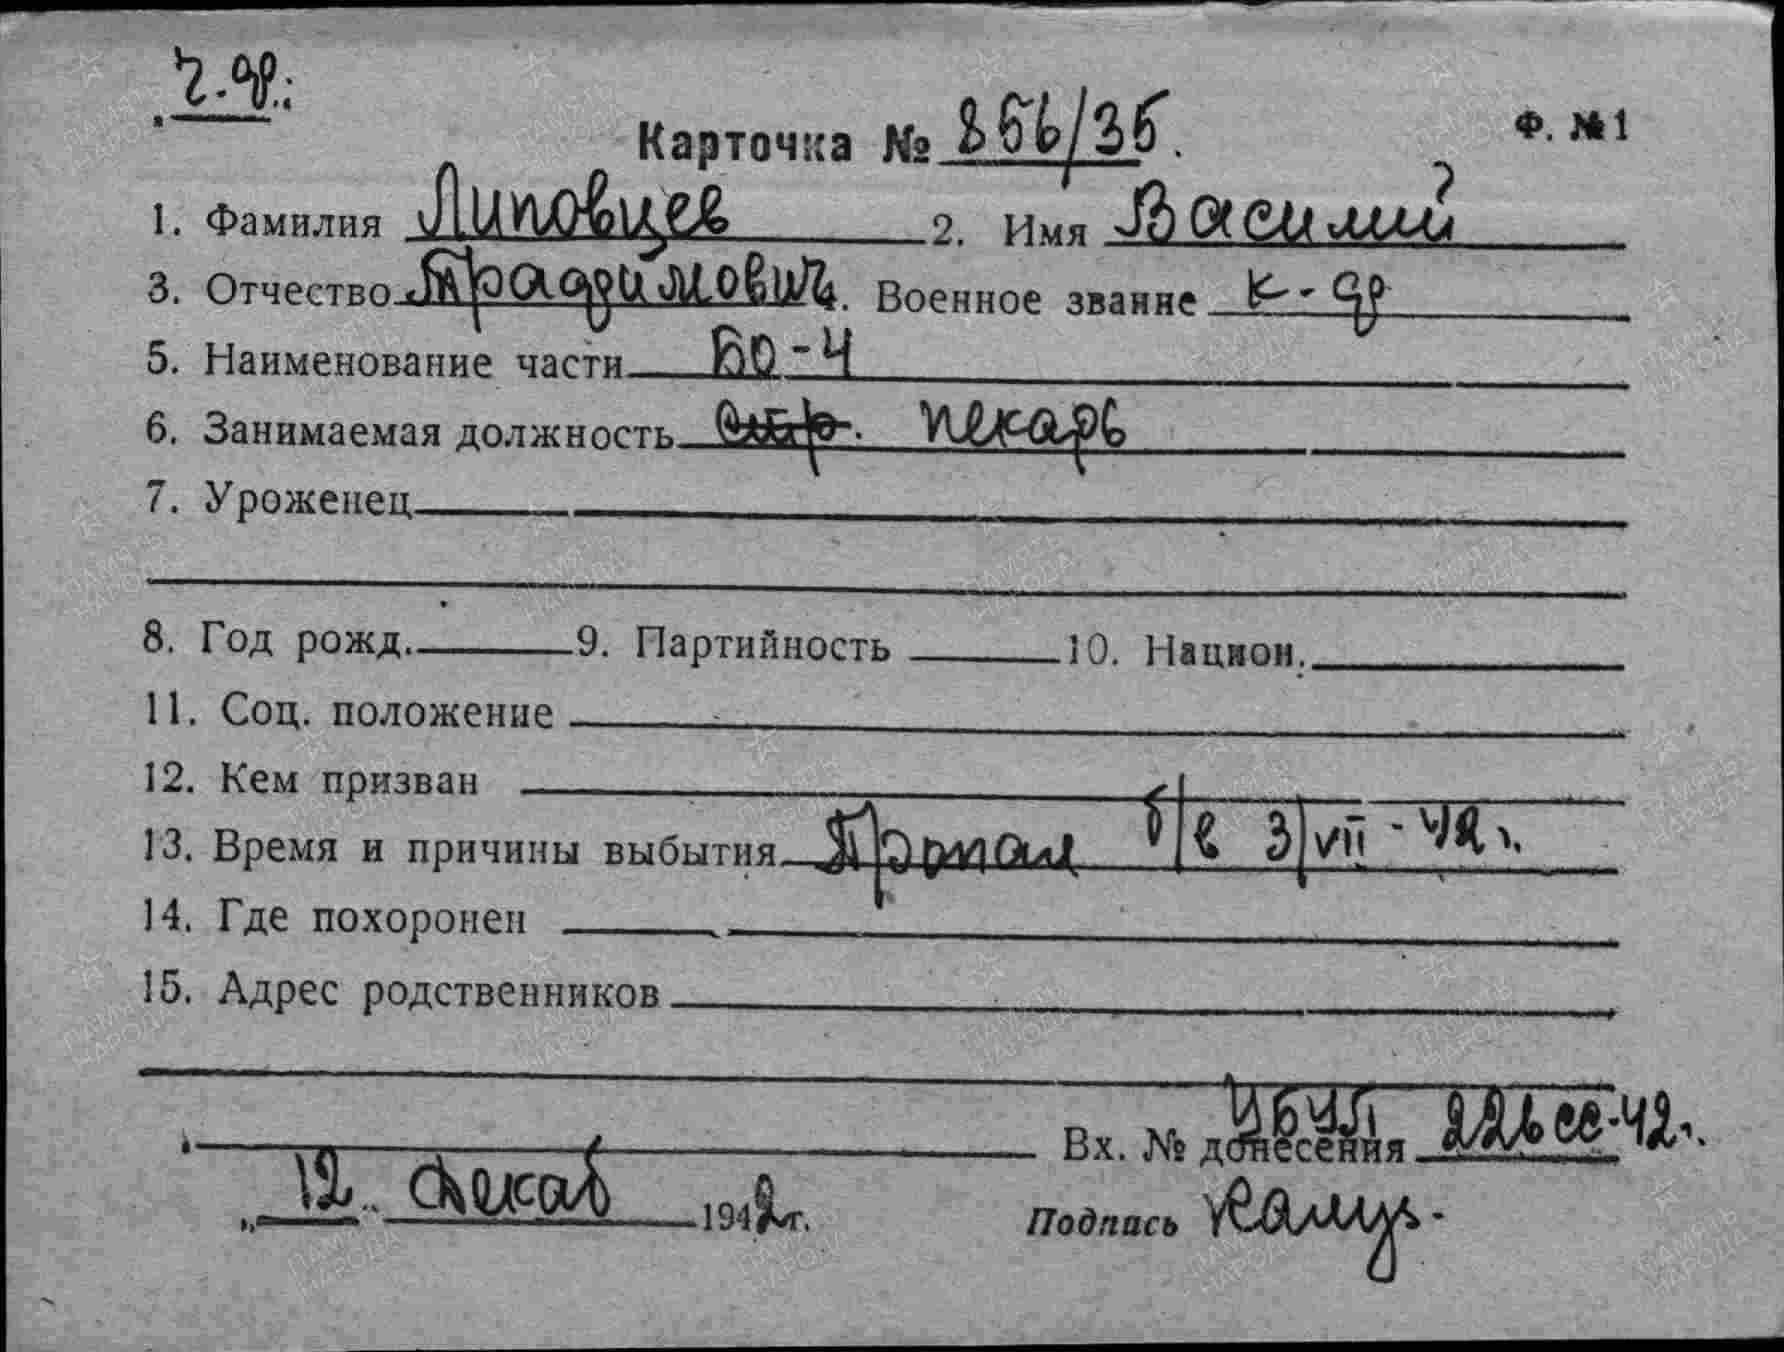 Ч.Ф.
Карточка № 256/35. Ф. №1
1. Фамилия Липовцев 2. Имя Василий
3. Отчество Трафимович. Военное звание к-ф
5. Наименование части БО-4
6. Занимаемая должность пекарь
7. Уроженец
8. Год рожд. 9. Партийность 10. Национ.
11. Соц. положение
12. Кем призван
13. Время и причины выбытия Пропал б/в 3/VII-42г.
14. Где похоронен
15. Адрес родственников
Вх. № донесения 42г.
„12" декаб 1942г. Подпись